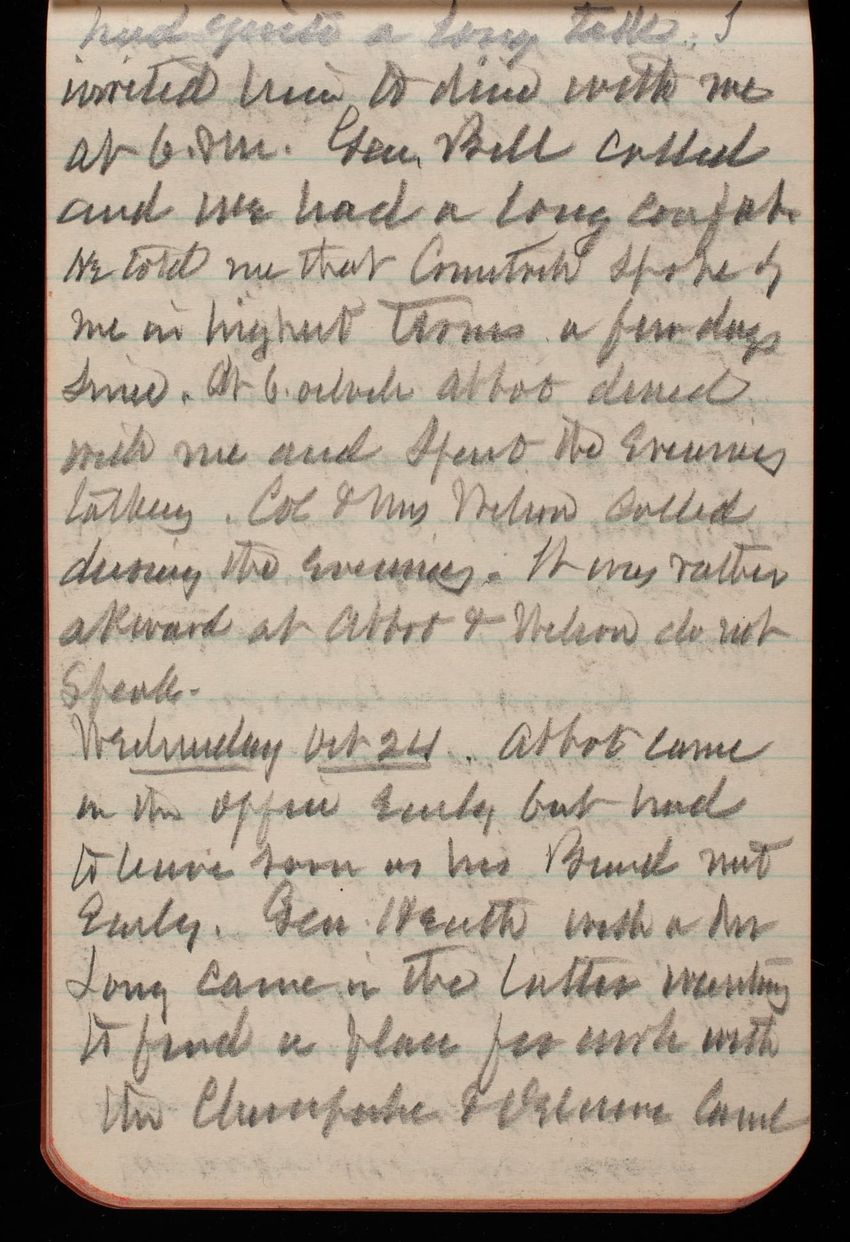 had quite a long talk. I
invited him to dine with me
at 6. P.M. Gen. Bell called
and we had a long confab.
He told me that Comstock spoke of
me in highest terms a few days
since. At 6. oclock Abbot dined
with me and spent the Evening
talking. Col & Mrs Wilson called
during the Evening. It was rather
akward at Abbot & Wilson do not
speak.
Wednesday Oct 24. Abbot came
in the office Early but had
to leave soon as his Board met
Early. Gen. Heuth with a Mr
Long came in the latter wanting
to find a place for work with
the Chesapeake & Delaware Canal